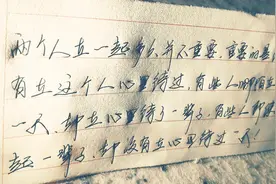 两个人在一起多久并不重要,重要的是
有在这个人心里待过,有些人哪怕在
一天,却在心里待了一辈子,有些人
在一起一辈子,却没有在心里待过一天!